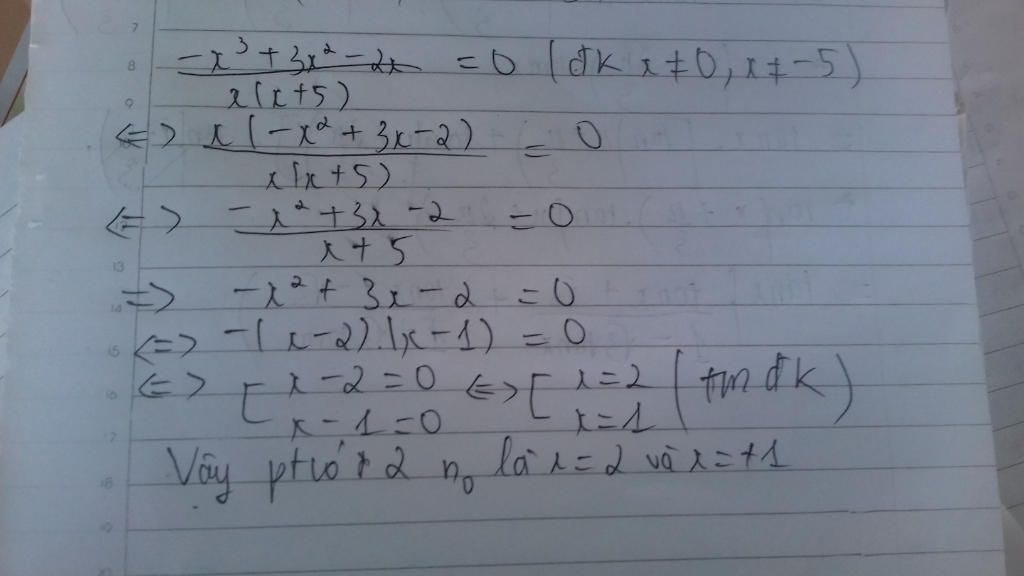 -x³ + 3x² - 2x / x(x+5) = 0 (đk x ≠ 0, x ≠ -5)
<=> x(-x² + 3x - 2) / x(x+5) = 0
<=> -x² + 3x - 2 / x + 5 = 0
=> -x² + 3x - 2 = 0
<=> -(x-2).(x-1) = 0
<=> [ x - 2 = 0 <=> [ x = 2 (tm đk)
x - 1 = 0 x = 1
Vậy pt có 2 n₀ là x = 2 và x = +1